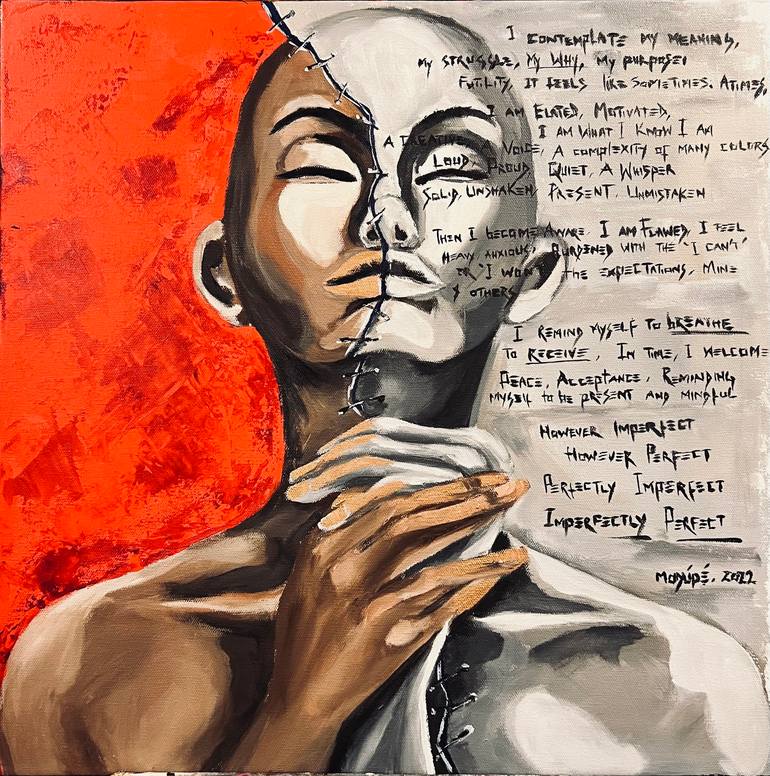 I CONTEMPLATE MY MEANING,
MY STRUGGLE, MY WHY, MY PURPOSE!
FUTILITY, IT FEELS LIKE SOMETIMES. ATIMES,
I AM ELATED, MOTIVATED,
I AM WHAT I KNOW I AM
A VOICE, A COMPLEXITY OF MANY COLORS
LOUD, PROUD, QUIET, A WHISPER
SOLID, UNSHAKEN, PRESENT, UNMISTAKEN
THEN I BECOME AWARE, I AM FLAWED, I FEEL
HEAVY, ANXIOUS, BURDENED WITH THE "I CAN'T"
OR "I WON'T" THE EXPECTATIONS, MINE
& OTHERS
I REMIND MYSELF TO BREATHE
TO RECEIVE, IN TIME, I WELCOME
PEACE, ACCEPTANCE, REMINDING
MYSELF TO BE PRESENT AND MINDFUL
HOWEVER IMPERFECT
HOWEVER PERFECT
PERFECTLY IMPERFECT
IMPERFECTLY PERFECT
Moyúpé. 2022